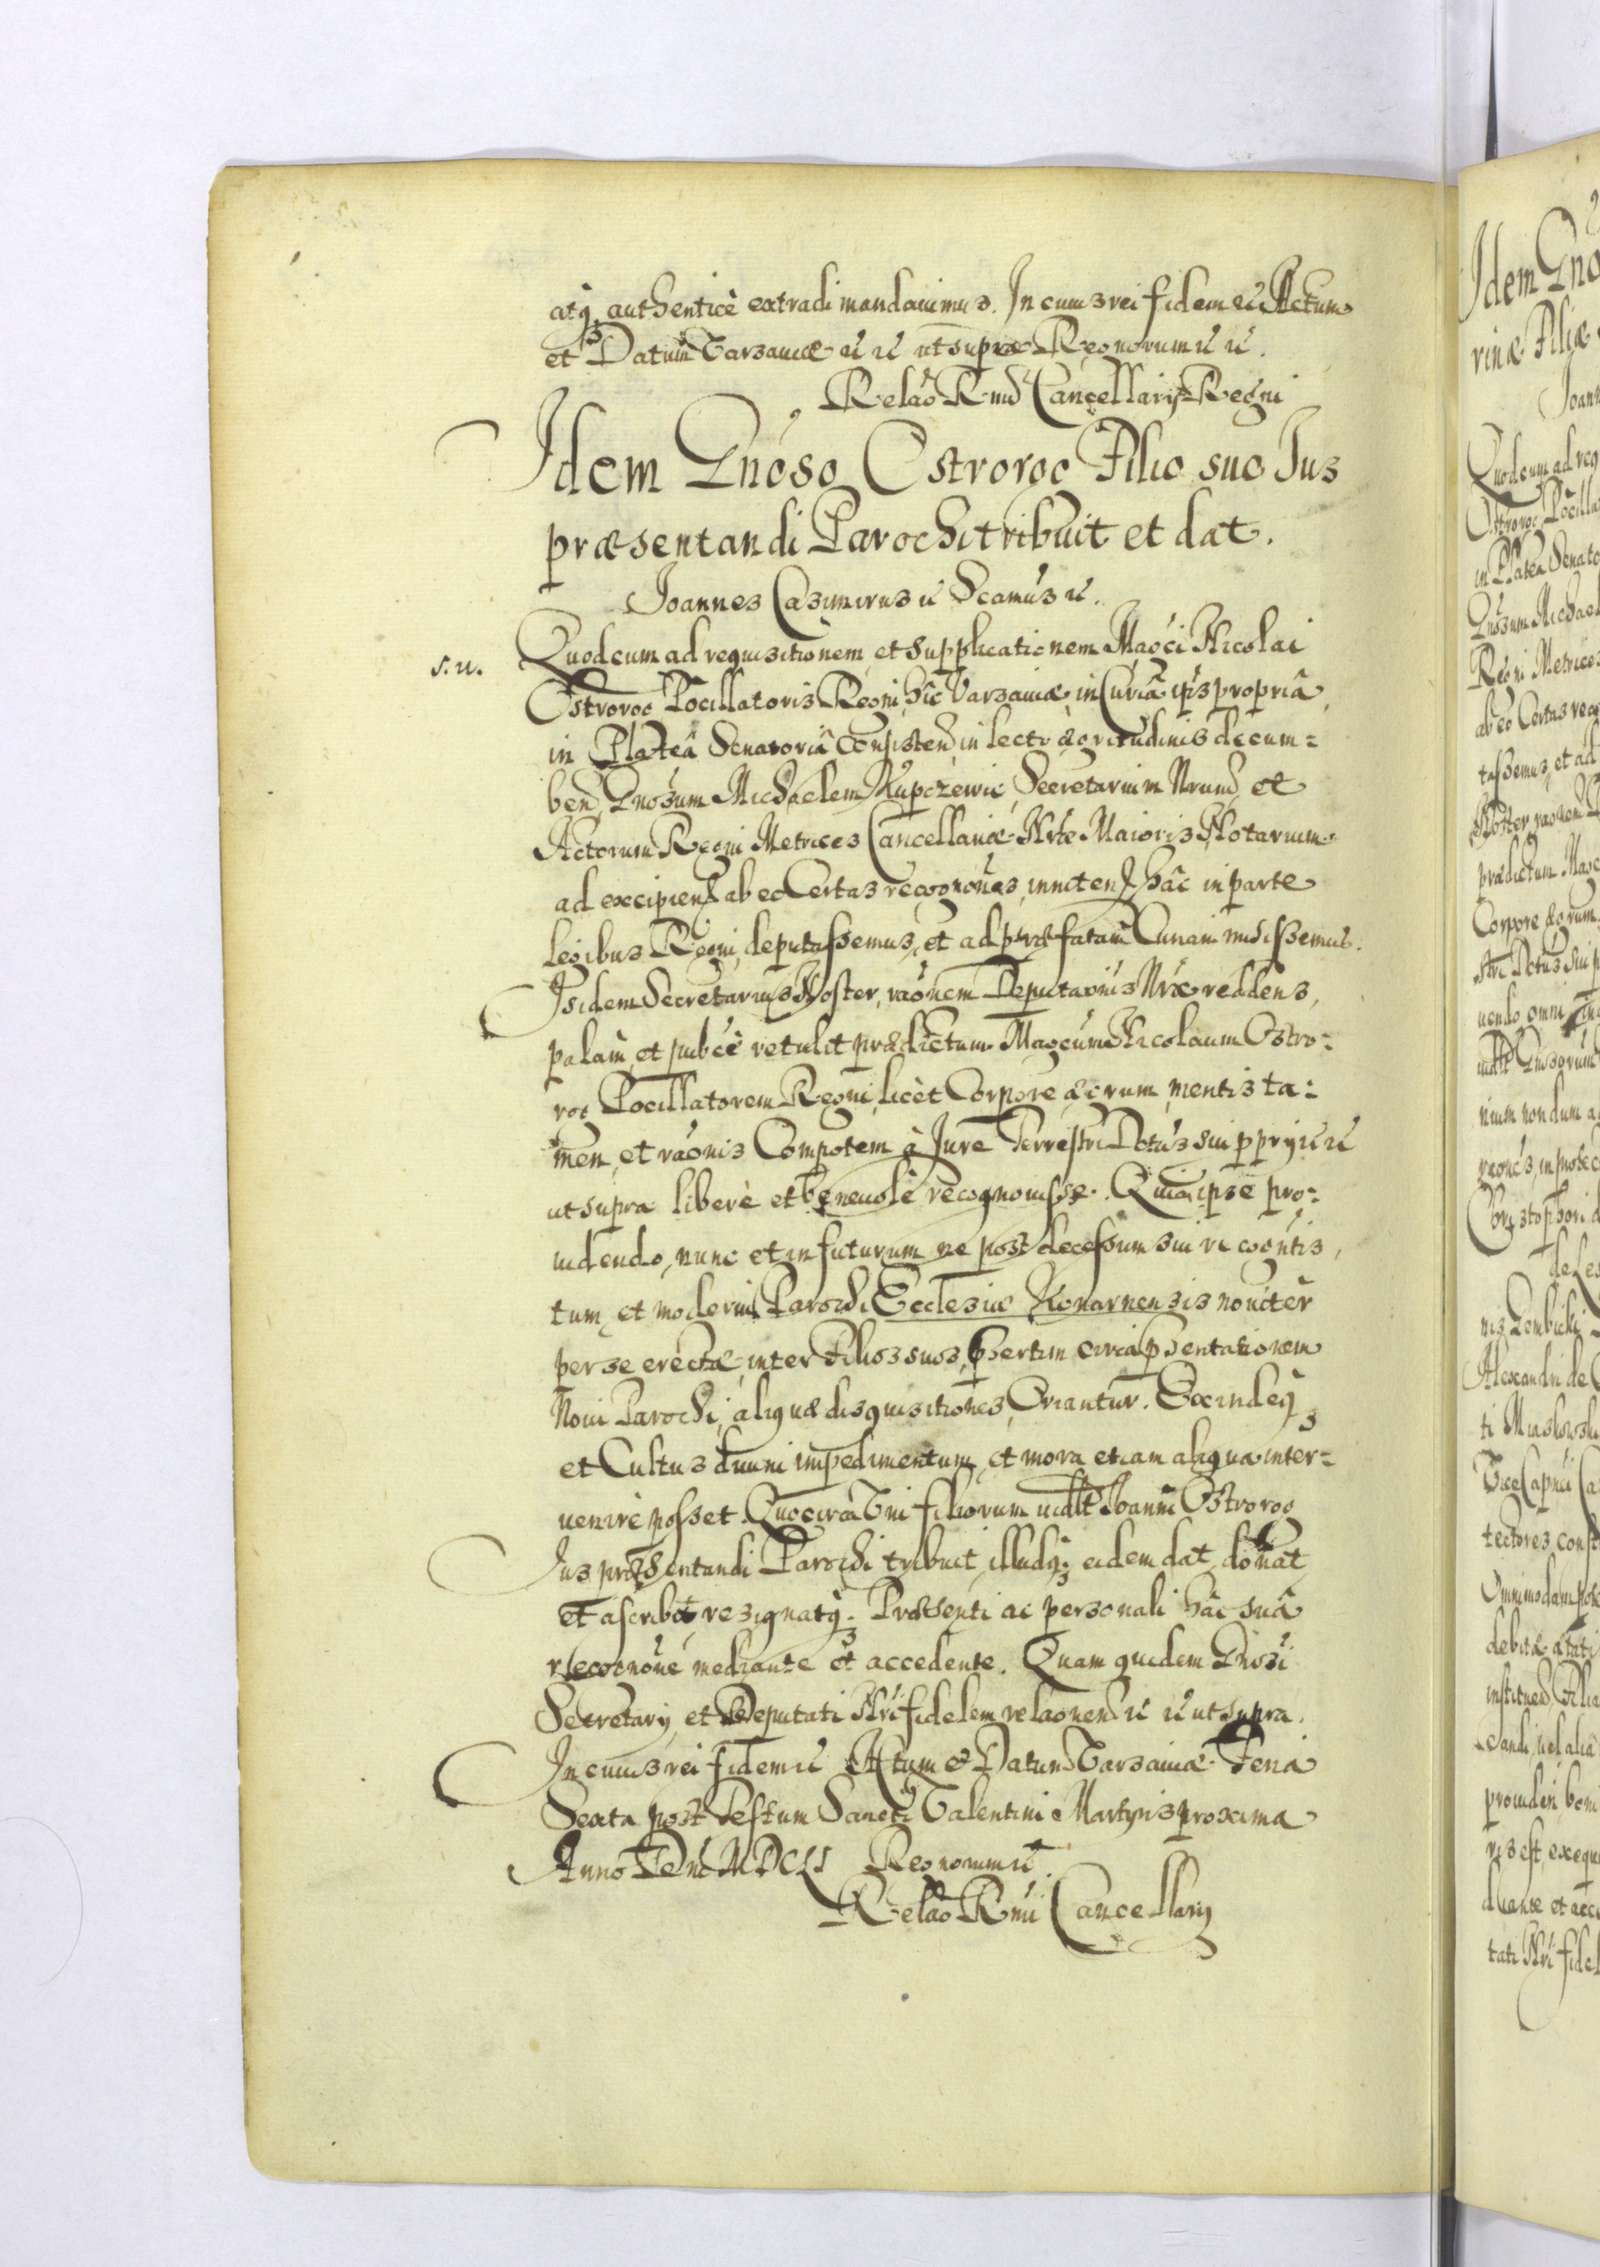 atq3 authenticè extradi mandauimus. In cuius rei fidem etc Actum
et Datum Varsauiæ etc etc ut supra Regnorum etc etc.
Relaō Rmi Cancellarij Regni
Idem Gnōso Ostrorog Filio suo Ius
præsentandi Parochi tribuit et dat.
Joannes Casimirus etc Scamus etc.
s. u.
Quod cum ad requisitionem et supplicationem Magci Nicolai
Ostrorog Pocillatoris Regni hîc Varsauiæ, in Curiâ ipīs propriâ
in Plateâ Senatoriâ Consisten̄, in lecto ægritudinis decum=
ben, Gnosum Michaelem Kupczewic Secretarium Nrum, et
Actorum Regni Metrices Cancellariæ Nræ Maioris Notarium
ad excipien̄ ab eo Certas recognoēs, inniten̄ hâc in parte
legibus Regni, deputassemus, et ad præfatam Curiam misissemus.
Isidem Secretarius Noster, raōnem Deputaōnis Nræ reddens,
palàm, et pubcè retulit prædictum Magcum Nicolaum Ostro=
rog Pocillatorem Regni, licèt Corpore ægrum, mentis ta=
men, et raōnis Compotem à Jure Terrestri Dctūs sui pprijs etc etc
ut supra liberè et beneuolè recognouisse. Quia ipse pro=
uidendo, nunc et in futurum ne post decessum sui recogntis,
tum, et moderni Parochi Ecclesiæ Konarnensis nouiter
per se erectæ, inter Filios suos, psertim circa psentationem
Noui Parochi, aliquæ disquisitiones, Oriantur. Exindeq3
et Cultus diuini impedimentum, et mora etiam aliqua inter=
uenire posset. Quocirca Vni filiorum uidlt Joanni Ostrorog
Jus præsentandi Parochi tribuit, illudq3 eidem dat, donat
et ascribit, resignatq3. Præsenti ac personali hâc suâ
recognoūe mediante et accedente. Quam quidem Gnosi
Secretarij, et Deputati Nri fidelem relaonem etc etc ut supra.
In cuius rei fidem etc Actum et Datum Varsauiæ Feria
Sexta post Festum Sancti Valentini Martyris proxima
Anno Dni MDCLI Regnorum etc.
Relaō Rmi Cancellarij